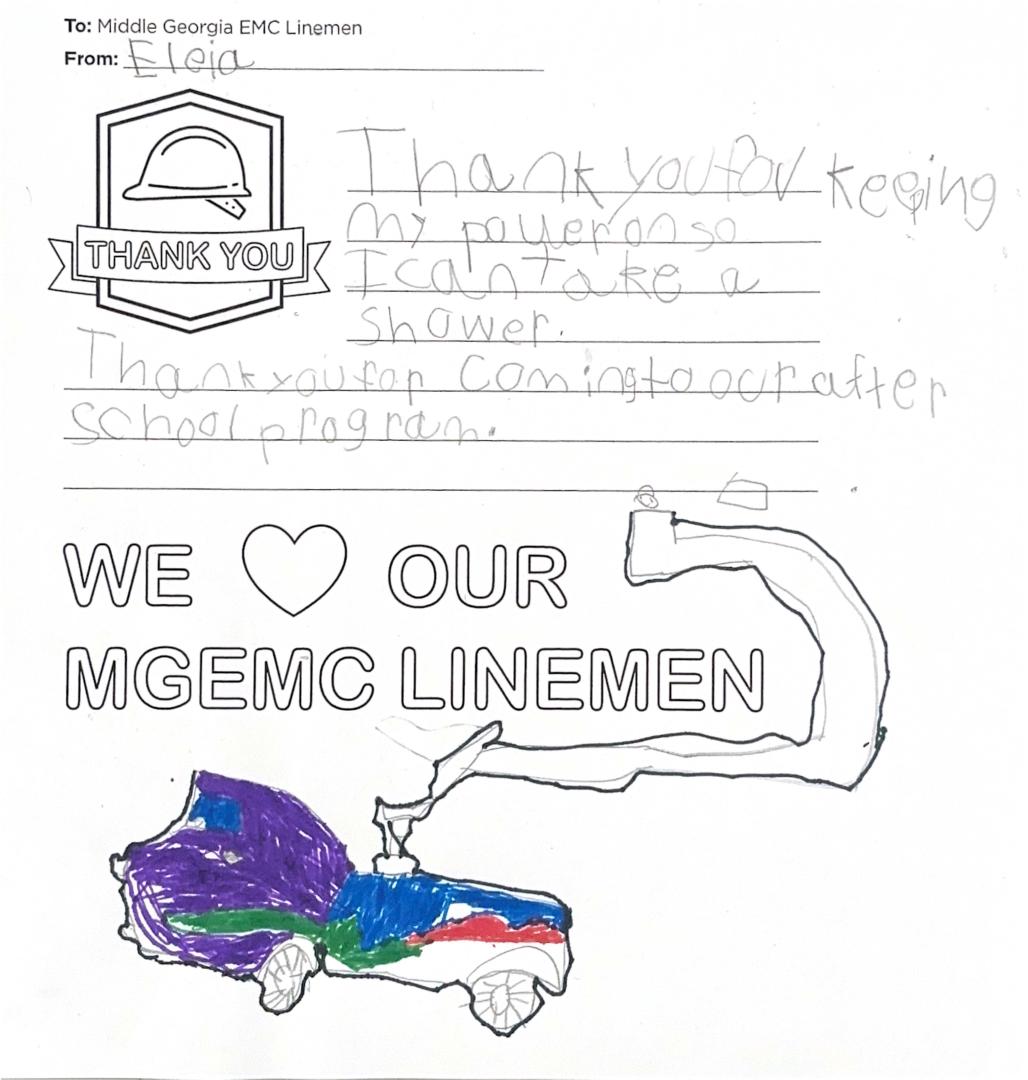 To: Middle Georgia EMC Linemen
From: Eleia
THANK YOU
Thank you for Keeping
my power on so
I can Take a
Shower.
Thank you for Coming to our after
School program.
WE OUR
MGEMC LINEMEN